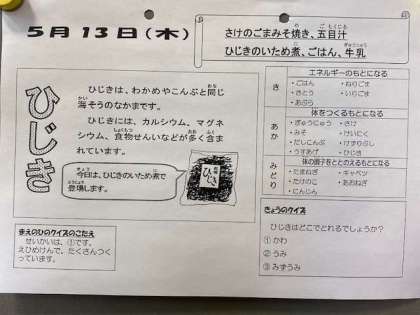 5月13日(木)
さけのごまみそ焼き、五目汁
ひじきのいため煮、ごはん、牛乳
ひじき
ひじきは、わかめやこんぶと同じ
海そうのなかまです。
ひじきには、カルシウム、マグネ
シウム、食物せんいなどが多く含ま
れています。
今日は、ひじきのいため煮で
登場します。
ひじき
エネルギーのもとになる
き
・ごはん ・ねりごま
・さとう ・いりごま
・あぶら
体をつくるもとになる
あか
・ぎゅうにゅう ・さけ
・みそ ・けいにく
・だしこんぶ ・けずりぶし
・うすあげ ・ひじき
体の調子をととのえるもとになる
みどり
・たまねぎ ・キャベツ
・たけのこ ・あおねぎ
・にんじん
まえのひのクイズのこたえ
せいかいは、①です。
えひめけんで、たくさんつく
っています。
きょうのクイズ
ひじきはどこでとれるでしょうか?
① かわ
② うみ
③ みずうみ